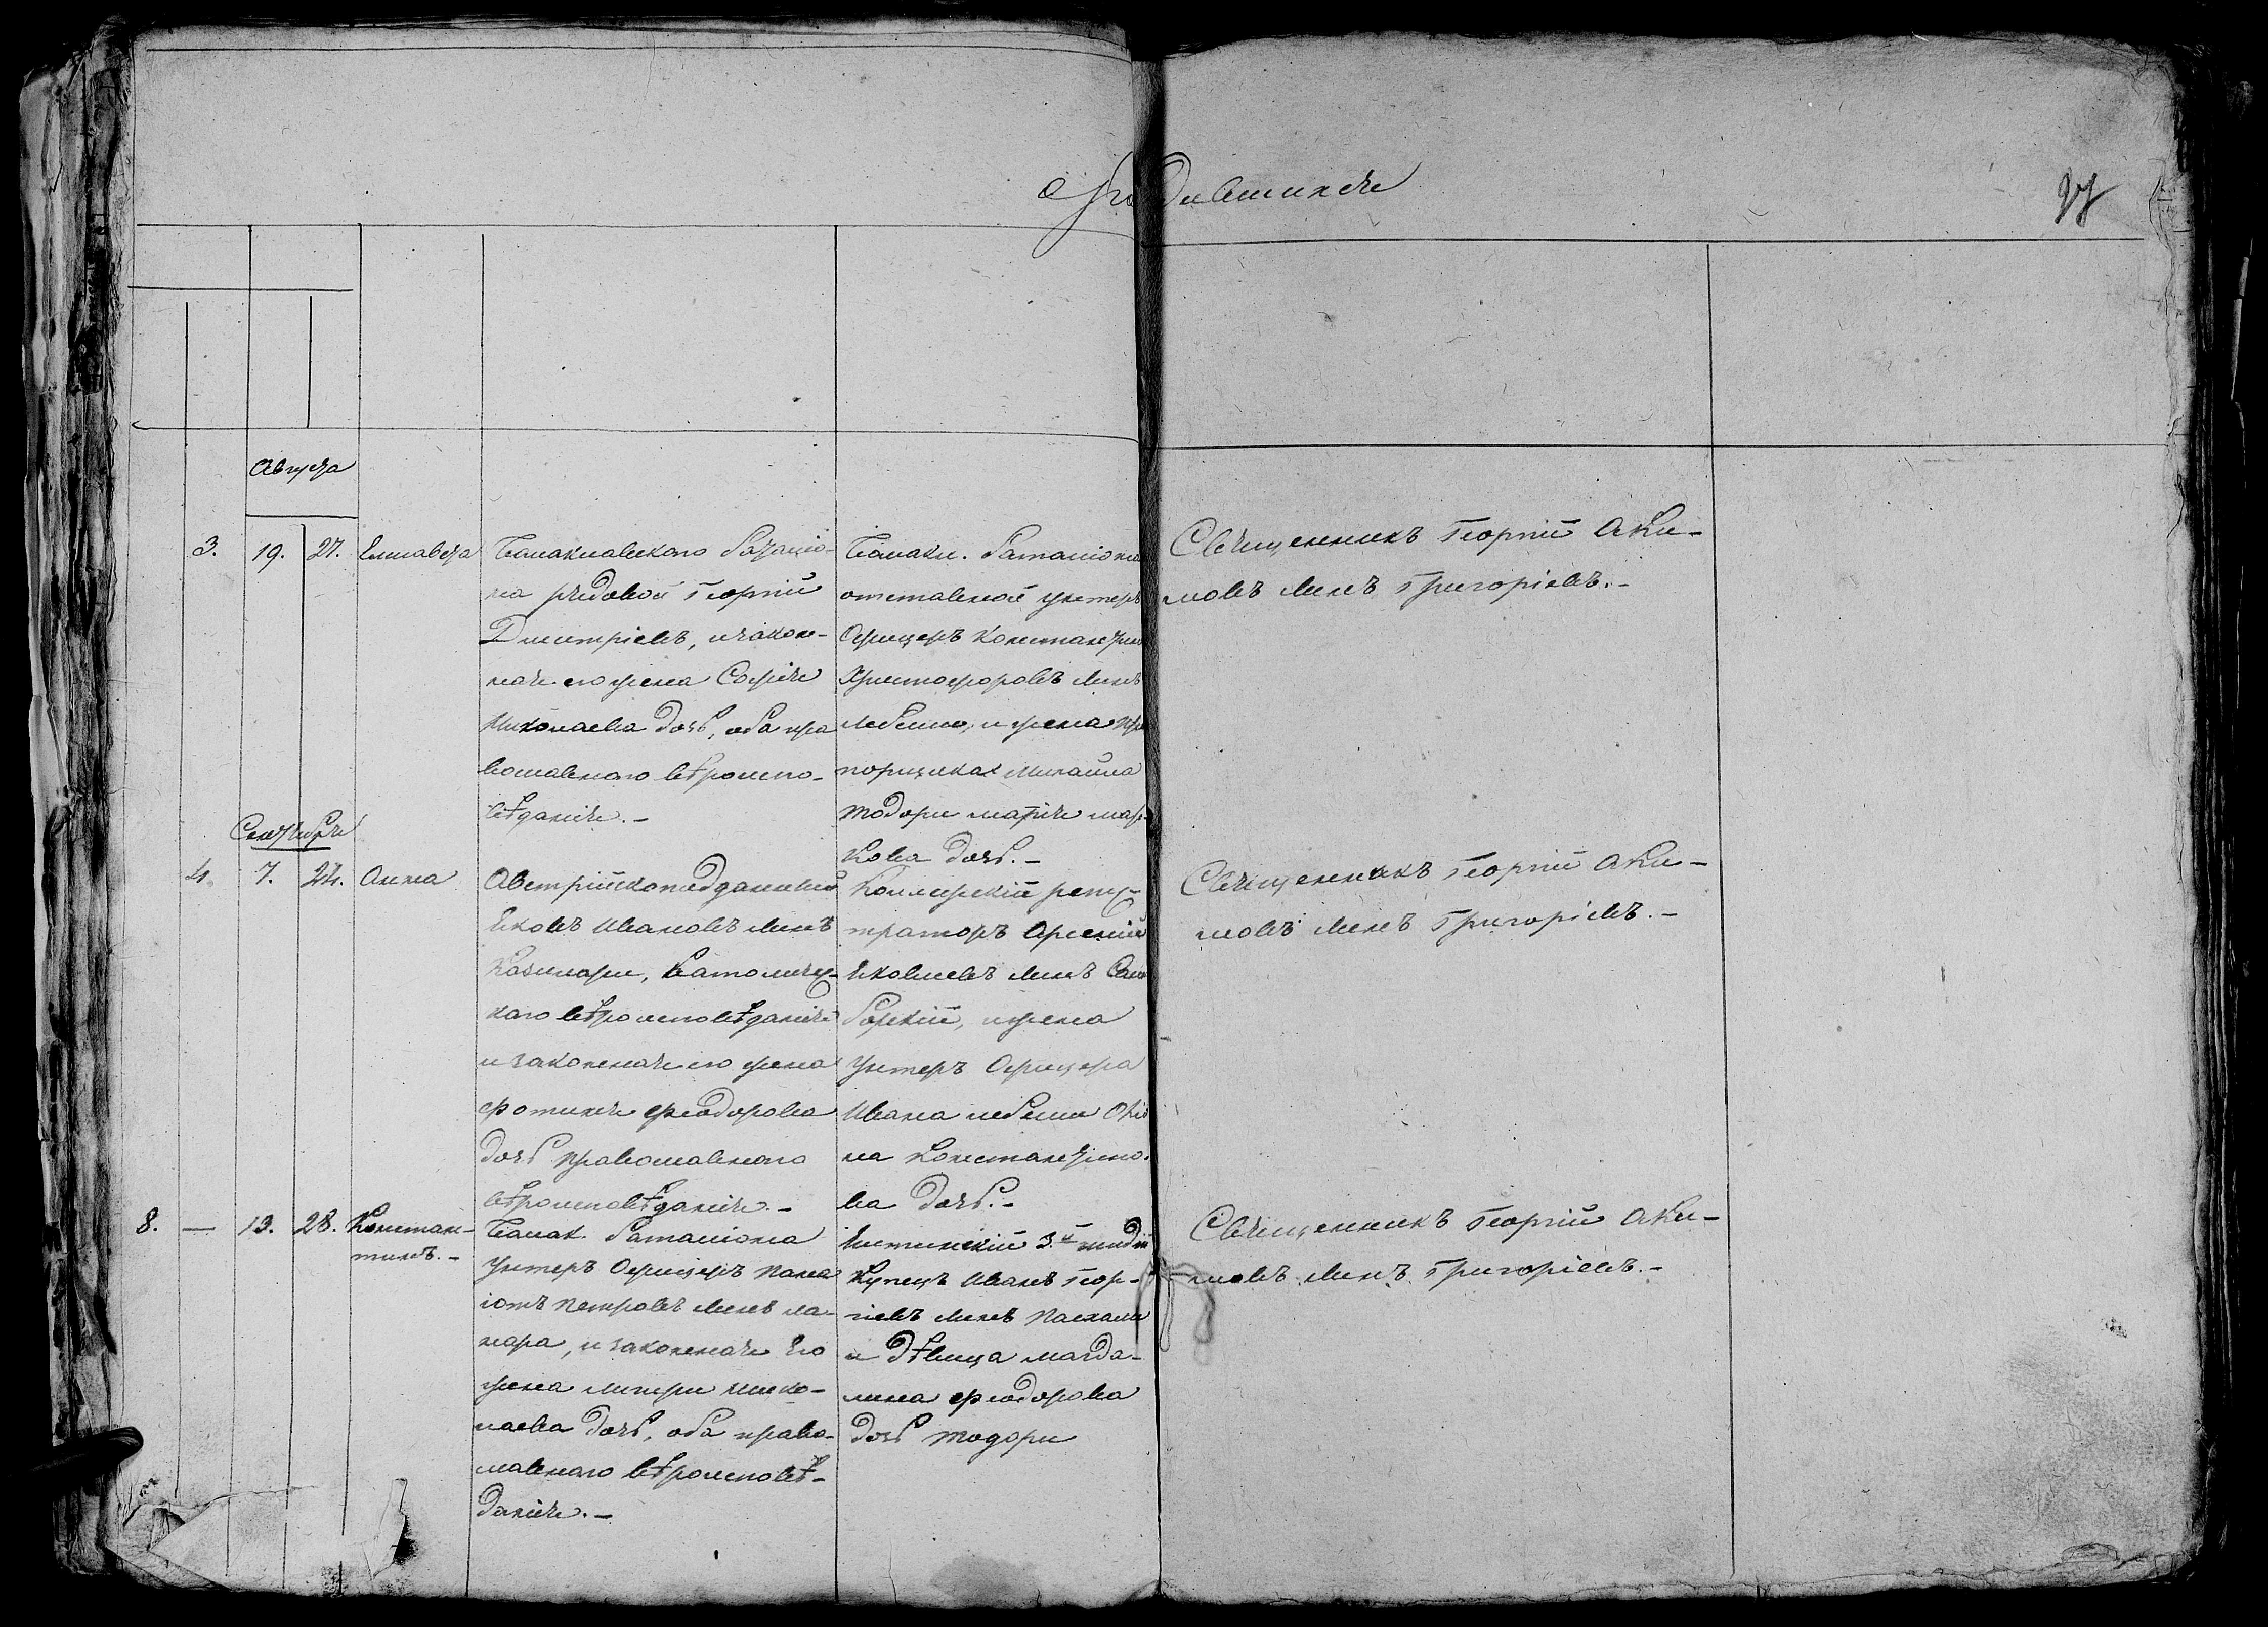 о Родившихся
97
Августа
3. 19. 27. Елисавета
Балаклавскаго баталіо-
на рядовой Георгій
Димитріевъ, и закон-
ная его жена Софія
Николаева дочь, оба пра
вославнаго вѣроиспо-
вѣданія. -
Балакл. баталіона
отставной унтеръ
Офицеръ Константинъ
Христофоровъ сынъ
и жена
порщика Михаила
Тодори Марія Мар-
кова дочь. -
Священникъ Георгій Аки-
мовъ сынъ Григоріевъ. -
Сентября
4. 7. 24. Анна
Австрійскоподданный
Яковъ Ивановъ сынъ
католичес-
каго вѣроисповѣданія
и законная его жена
Фотинія Феодорова
дочь православнаго
вѣроисповѣданія. -
Коллежскій регис-
траторъ Арсеній
Яковлевъ сынъ
и жена
Унтеръ Офицера
Ивана
на Константино-
ва дочь. -
Священникъ Георгій Аки-
мовъ сынъ Григоріевъ. -
8. — 13. 28. Констан-
тинъ. -
Балак. баталіона
Унтеръ Офицеръ Пана
іотъ Петровъ сынъ
и законная Его
жена Нико-
лаева дочь, оба право-
славнаго вѣроисповѣ-
данія. -
3.й гилдіи
Купецъ Иванъ Геор-
гіевъ сынъ Пасхали
и дѣвица Магда-
лина Феодорова
дочь Тодори
Священникъ Георгій Аки-
мовъ сынъ Григоріевъ. -